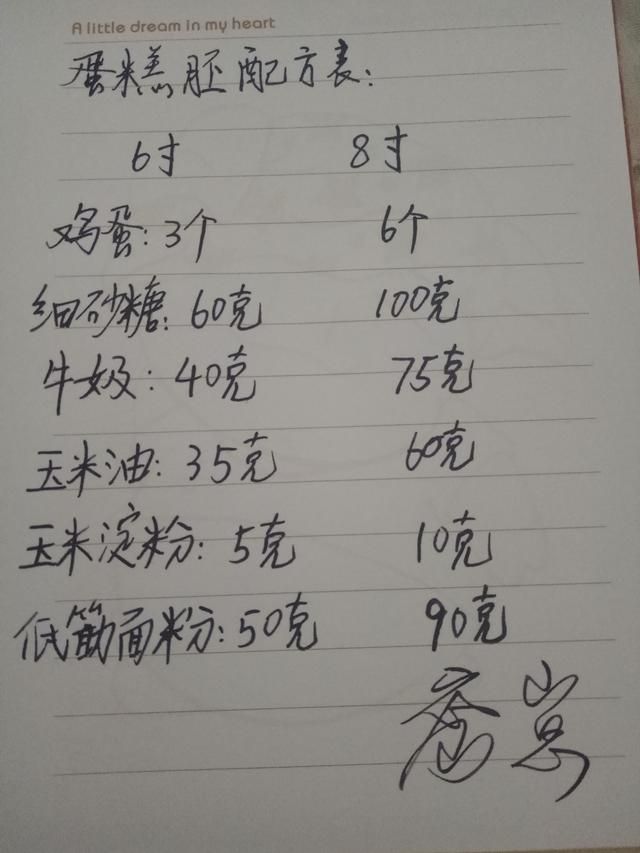 A little dream in my heart
蛋糕胚配方表:
6寸 8寸
鸡蛋:3个 6个
细砂糖:60克 100克
牛奶:40克 75克
玉米油:35克 60克
玉米淀粉:5克 10克
低筋面粉:50克 90克